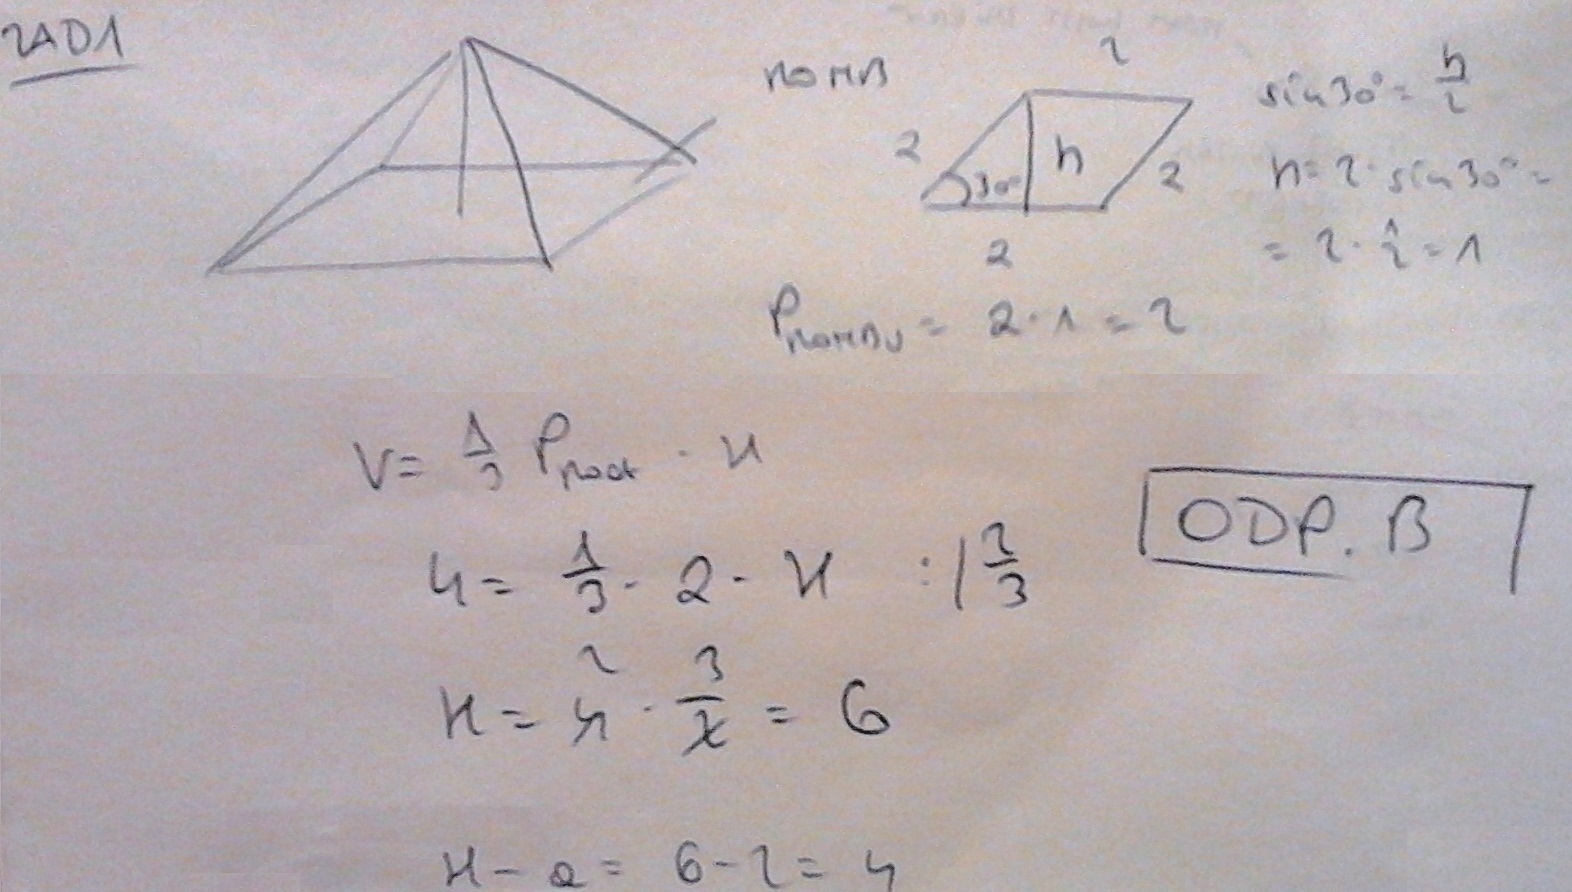 ZAD1
ROMB
2
2
30°
h
2
2
sin30° = h/2
h = 2 · sin30° =
= 2 · 1/2 = 1
P ROMBU = 2 · 1 = 2
V = 1/3 P podst · H
4 = 1/3 · 2 · H :| 2/3
H = 4 · 3/2 = 6
2
ODP. B
H - a = 6 - 2 = 4